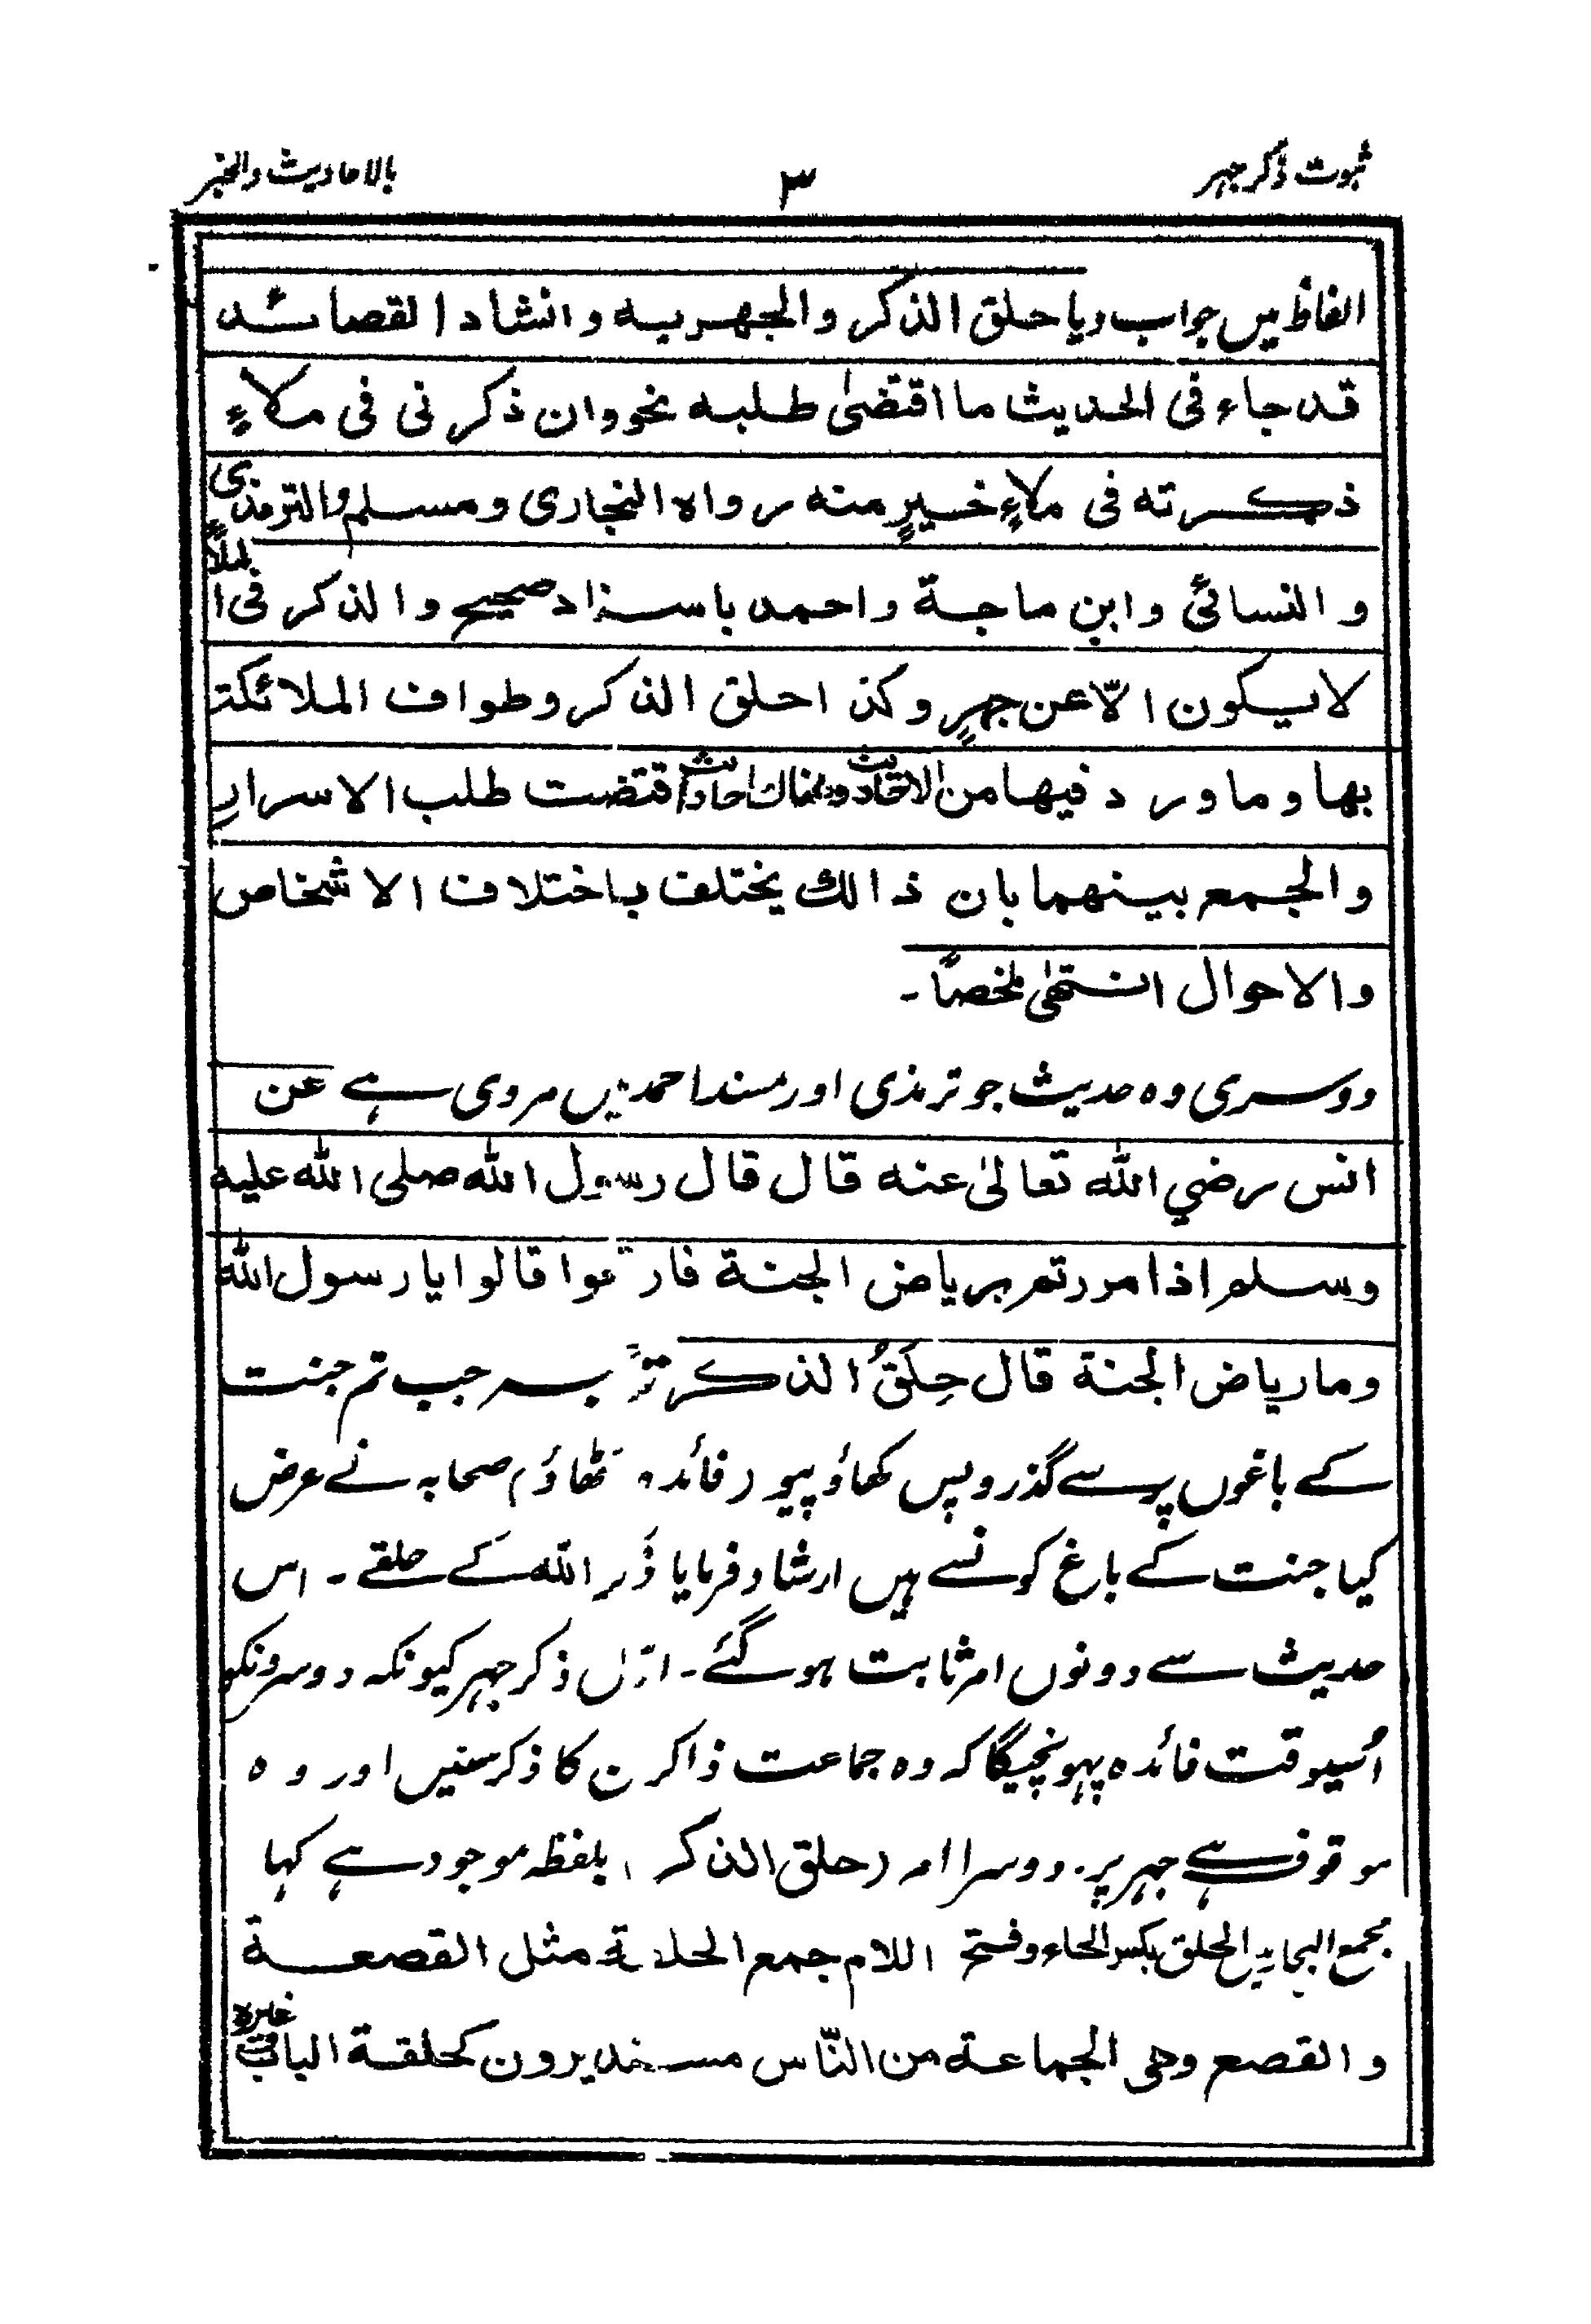 ثبوت ذکر جہر
۳
بالاحادیث والخبر
الفاظ میں جواب دیا حلق الذکر والجھریہ وانشاد القصائد
قد جاء فی الحدیث ما اقتضیٰ طلبہ نحو وان ذکر نی فی ملاءٍ
ذکرتہ فی ملاءٍ خیرٍ منہ رواہ البخاری ومسلم والترمذی
والنسائی وابن ماجۃ واحمد باسناد صحیح والذکر فی الملأ
لا یکون الّا عن جہرٍ وکذا حلق الذکر وطواف الملائکۃ
بھا وما ورد فیھا من الاحادیث وھناک احادیث اقتضت طلب الاسرار
والجمع بینھما بان ذالک یختلف باختلاف الاشخاص
والاحوال انتھیٰ ملخصاً۔
دوسری وہ حدیث جو ترمذی اور مسند احمد میں مروی ہے عن
انس رضی اللہ تعالیٰ عنہ قال قال رسول اللہ صلی اللہ علیہ
وسلم اذا مررتم بریاض الجنۃ فارتعوا قالوا یا رسول اللہ
وما ریاض الجنۃ قال حِلَقُ الذکر ترجمہ جب تم جنت
کے باغوں پر سے گذرو پس کھاؤ پیو (فائدہ اٹھاؤ) صحابہ نے عرض
کیا جنت کے باغ کونسے ہیں ارشاد فرمایا ذکر اللہ کے حلقے۔ اس
حدیث سے دونوں امر ثابت ہوگئے۔ اوّل ذکر جہر کیونکہ دوسرونکو
اُسیوقت فائدہ پہونچیگا کہ وہ جماعت ذاکرین کا ذکر سنیں اور وہ
موقوف ہے جہر پر۔ دوسرا امر (حلق الذکر) بلفظہ موجود ہے کہا
مجمع البحار میں الحلق بکسر الحاء وفتح اللام جمع الحلقۃ مثل القصعۃ
والقصع وھی الجماعۃ من النّاس مستدیرون کحلقۃ الباب وغیرہ